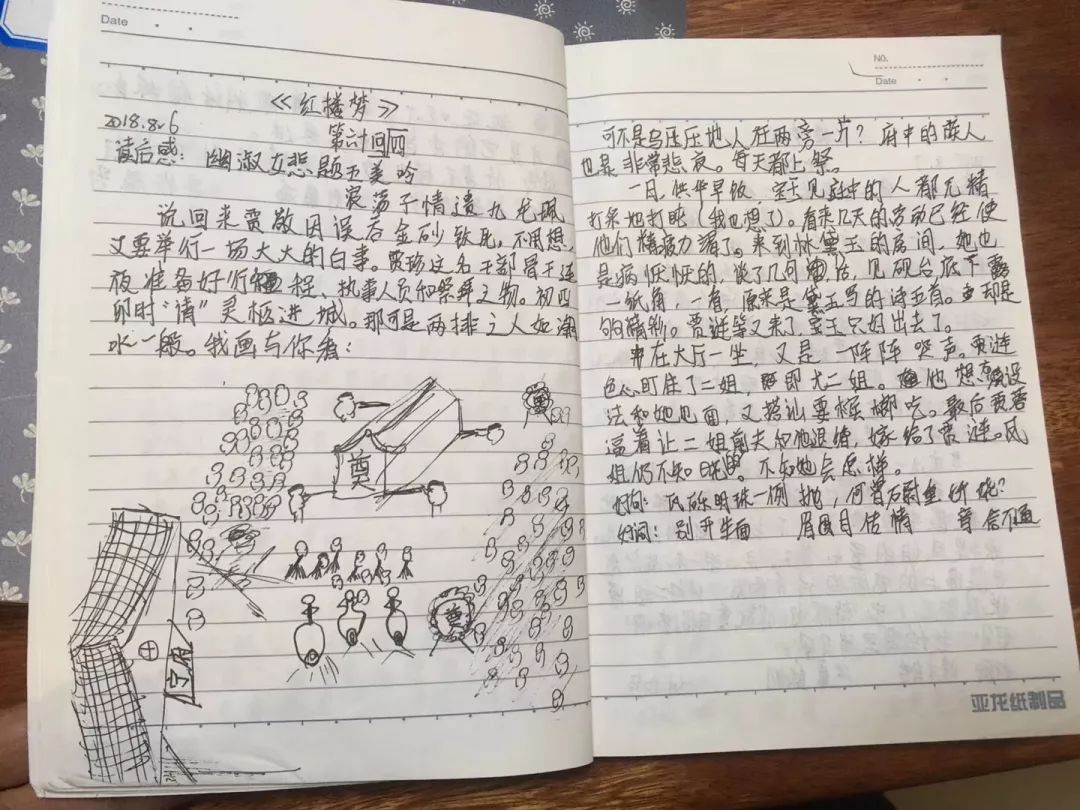 Date
《红楼梦》
2018.8.6
第六十四回
读后感：幽淑女悲题五美吟
浪荡子情遗九龙佩
说回来贾敬因误吞金砂钦死，不用想，
又要举行一场大大的白事。贾珍这名干部骨干连
夜准备好行程、执事人员和祭拜之物。初四
卯时“请”灵柩进城。那可是两排之人如潮
水一般。我画与你看：
奠
奠
宁府
No.
Date
可不是乌压压地人在两旁一片？府中的族人
也是非常悲哀。每天都上祭。
一日，供毕早饭，宝玉见庭中的人都无精
打采地打盹（我也想了）。看来几天的劳动已经使
他们精疲力竭了。来到林黛玉的房间，她也
是病恹恹的，谈了几句话，见砚台底下露
一纸角，一看，原来是黛玉写的诗五首。却是
的精彩。贾琏等又来了，宝玉只好出去了。
在大厅一坐，又是一阵阵哭声。贾琏
色心盯住了二姐，即尤二姐。他想方设
法和她见面，又搭讪要槟榔吃。最后贾蓉
逼着让二姐前夫和他退婚，嫁给了贾琏。凤
姐仍不知晓。不知她会怎样。
好句：瓦砾明珠一例抛，何曾石尉重娇娆？
好词：别开生面 眉目传情 音信不通
亚龙纸制品